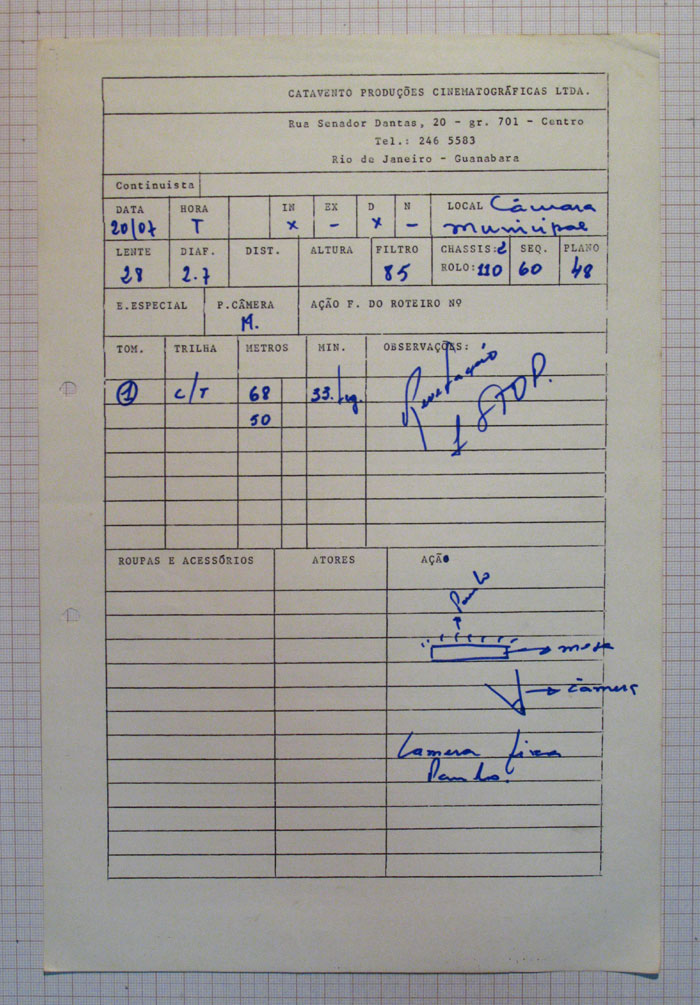 CATAVENTO PRODUÇÕES CINEMATOGRÁFICAS LTDA.
Rua Senador Dantas, 20 - gr. 701 - Centro
Tel.: 246 5583
Rio de Janeiro - Guanabara
Continuista
DATA HORA IN EX D N LOCAL Câmara
20/07 T x - x - Municipal
LENTE DIAF. DIST. ALTURA FILTRO CHASSIS: 2 SEQ. PLANO
28 2.7 85 ROLO: 110 60 48
E.ESPECIAL P.CÂMERA AÇÃO F. DO ROTEIRO Nº
M.
TOM. TRILHA METROS MIN. OBSERVAÇÕES:
1 C/T 68 33.
50
1 STOP.
ROUPAS E ACESSÓRIOS ATORES AÇÃO
Paulo
mesa
câmera
Camera fixa
Paulo.